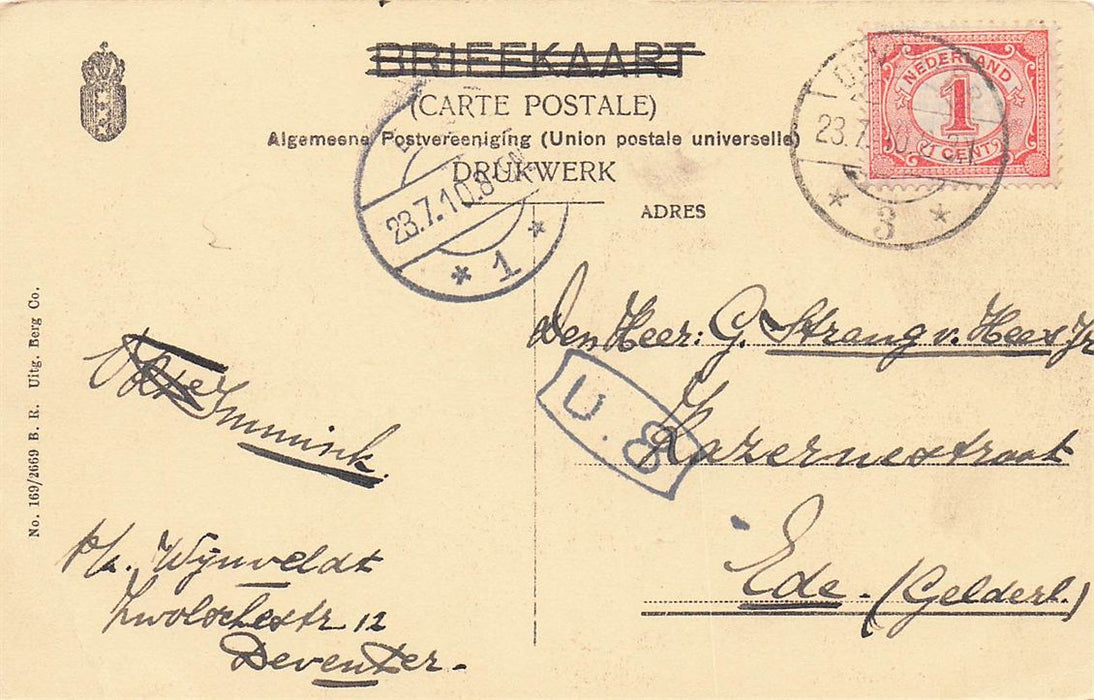 BRIEFKAART
(CARTE POSTALE)
Algemeene Postvereeniging (Union postale universelle)
DRUKWERK
ADRES
NEDERLAND
1
1 CENT
23.7.10.8
3
23.7.10.8
1
Den Heer: G. Strang v. Hees Jr
U.8
Kazernestraat
Ede - (Gelderl.)
Immink.
p/a. Wijnveldt
Zwolschestr 12
Deventer -
No. 169/2669 B. R. Uitg. Berg Co.